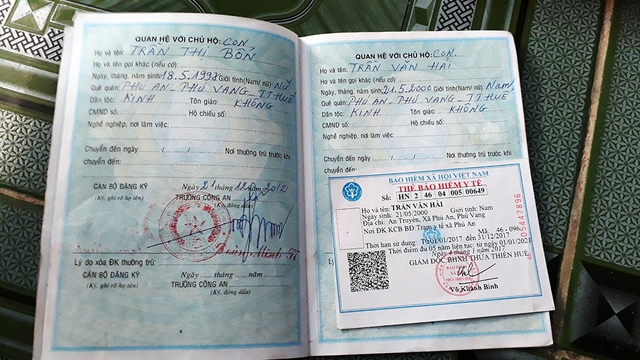 QUAN HỆ VỚI CHỦ HỘ: CON
Họ và tên: TRẦN THỊ BỐN
Họ và tên gọi khác (nếu có):
Ngày, tháng, năm sinh: 18.5.1997 Giới tính (Nam/ nữ): Nữ
Quê quán: PHÚ AN - PHÚ VANG - TT HUẾ
Dân tộc: KINH Tôn giáo: KHÔNG
CMND số: Hộ chiếu số:
Nghề nghiệp, nơi làm việc:
Chuyển đến ngày / / Nơi thường trú trước khi
chuyển đến:
Ngày 21 tháng 12 năm 2012
CÁN BỘ ĐĂNG KÝ TRƯỞNG CÔNG AN
(Ký, ghi rõ họ tên) (Ký, đóng dấu)
Lý do xóa ĐK thường trú:
Ngày tháng năm
CÁN BỘ ĐĂNG KÝ TRƯỞNG CÔNG AN
(Ký, ghi rõ họ tên) (Ký, đóng dấu)
QUAN HỆ VỚI CHỦ HỘ: CON
Họ và tên: TRẦN VĂN HẢI
Họ và tên gọi khác (nếu có):
Ngày, tháng, năm sinh: 21.5.2000 Giới tính (Nam/ nữ): Nam
Quê quán: PHÚ AN - PHÚ VANG - TT HUẾ
Dân tộc: KINH Tôn giáo: KHÔNG
CMND số: Hộ chiếu số:
Nghề nghiệp, nơi làm việc:
Chuyển đến ngày / / Nơi thường trú trước khi
chuyển đến:
BẢO HIỂM XÃ HỘI VIỆT NAM
THẺ BẢO HIỂM Y TẾ
Số: HN 2 46 04 005 00649
Họ và tên: TRẦN VĂN HẢI
Ngày sinh: 21/05/2000 Giới tính: Nam
Địa chỉ: An Truyền, Xã Phú An, Phú Vang
Nơi ĐK KCB BĐ: Trạm y tế xã Phú An Mã: 46 - 096
Thời hạn sử dụng: 01/01/2017 đến 31/12/2017
Thời điểm đủ 05 năm liên tục: từ ngày 01/01/2021
GIÁM ĐỐC BHXH THỪA THIÊN HUẾ
Võ Khánh Bình